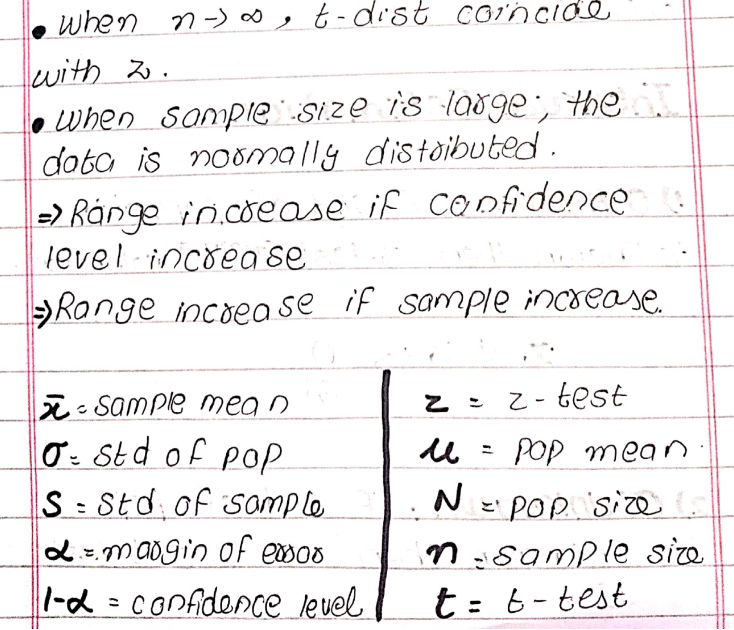 • When n→∞, t-dist coincide
with z.
• When sample size is large, the
data is normally distributed.
⇒ Range increase if confidence
level increase
⇒ Range increase if sample increase.
x̄ = sample mean
σ = std of pop
S = std of sample
α = margin of error
1-α = confidence level
z = z-test
μ = pop mean
N = pop size
n = sample size
t = t-test